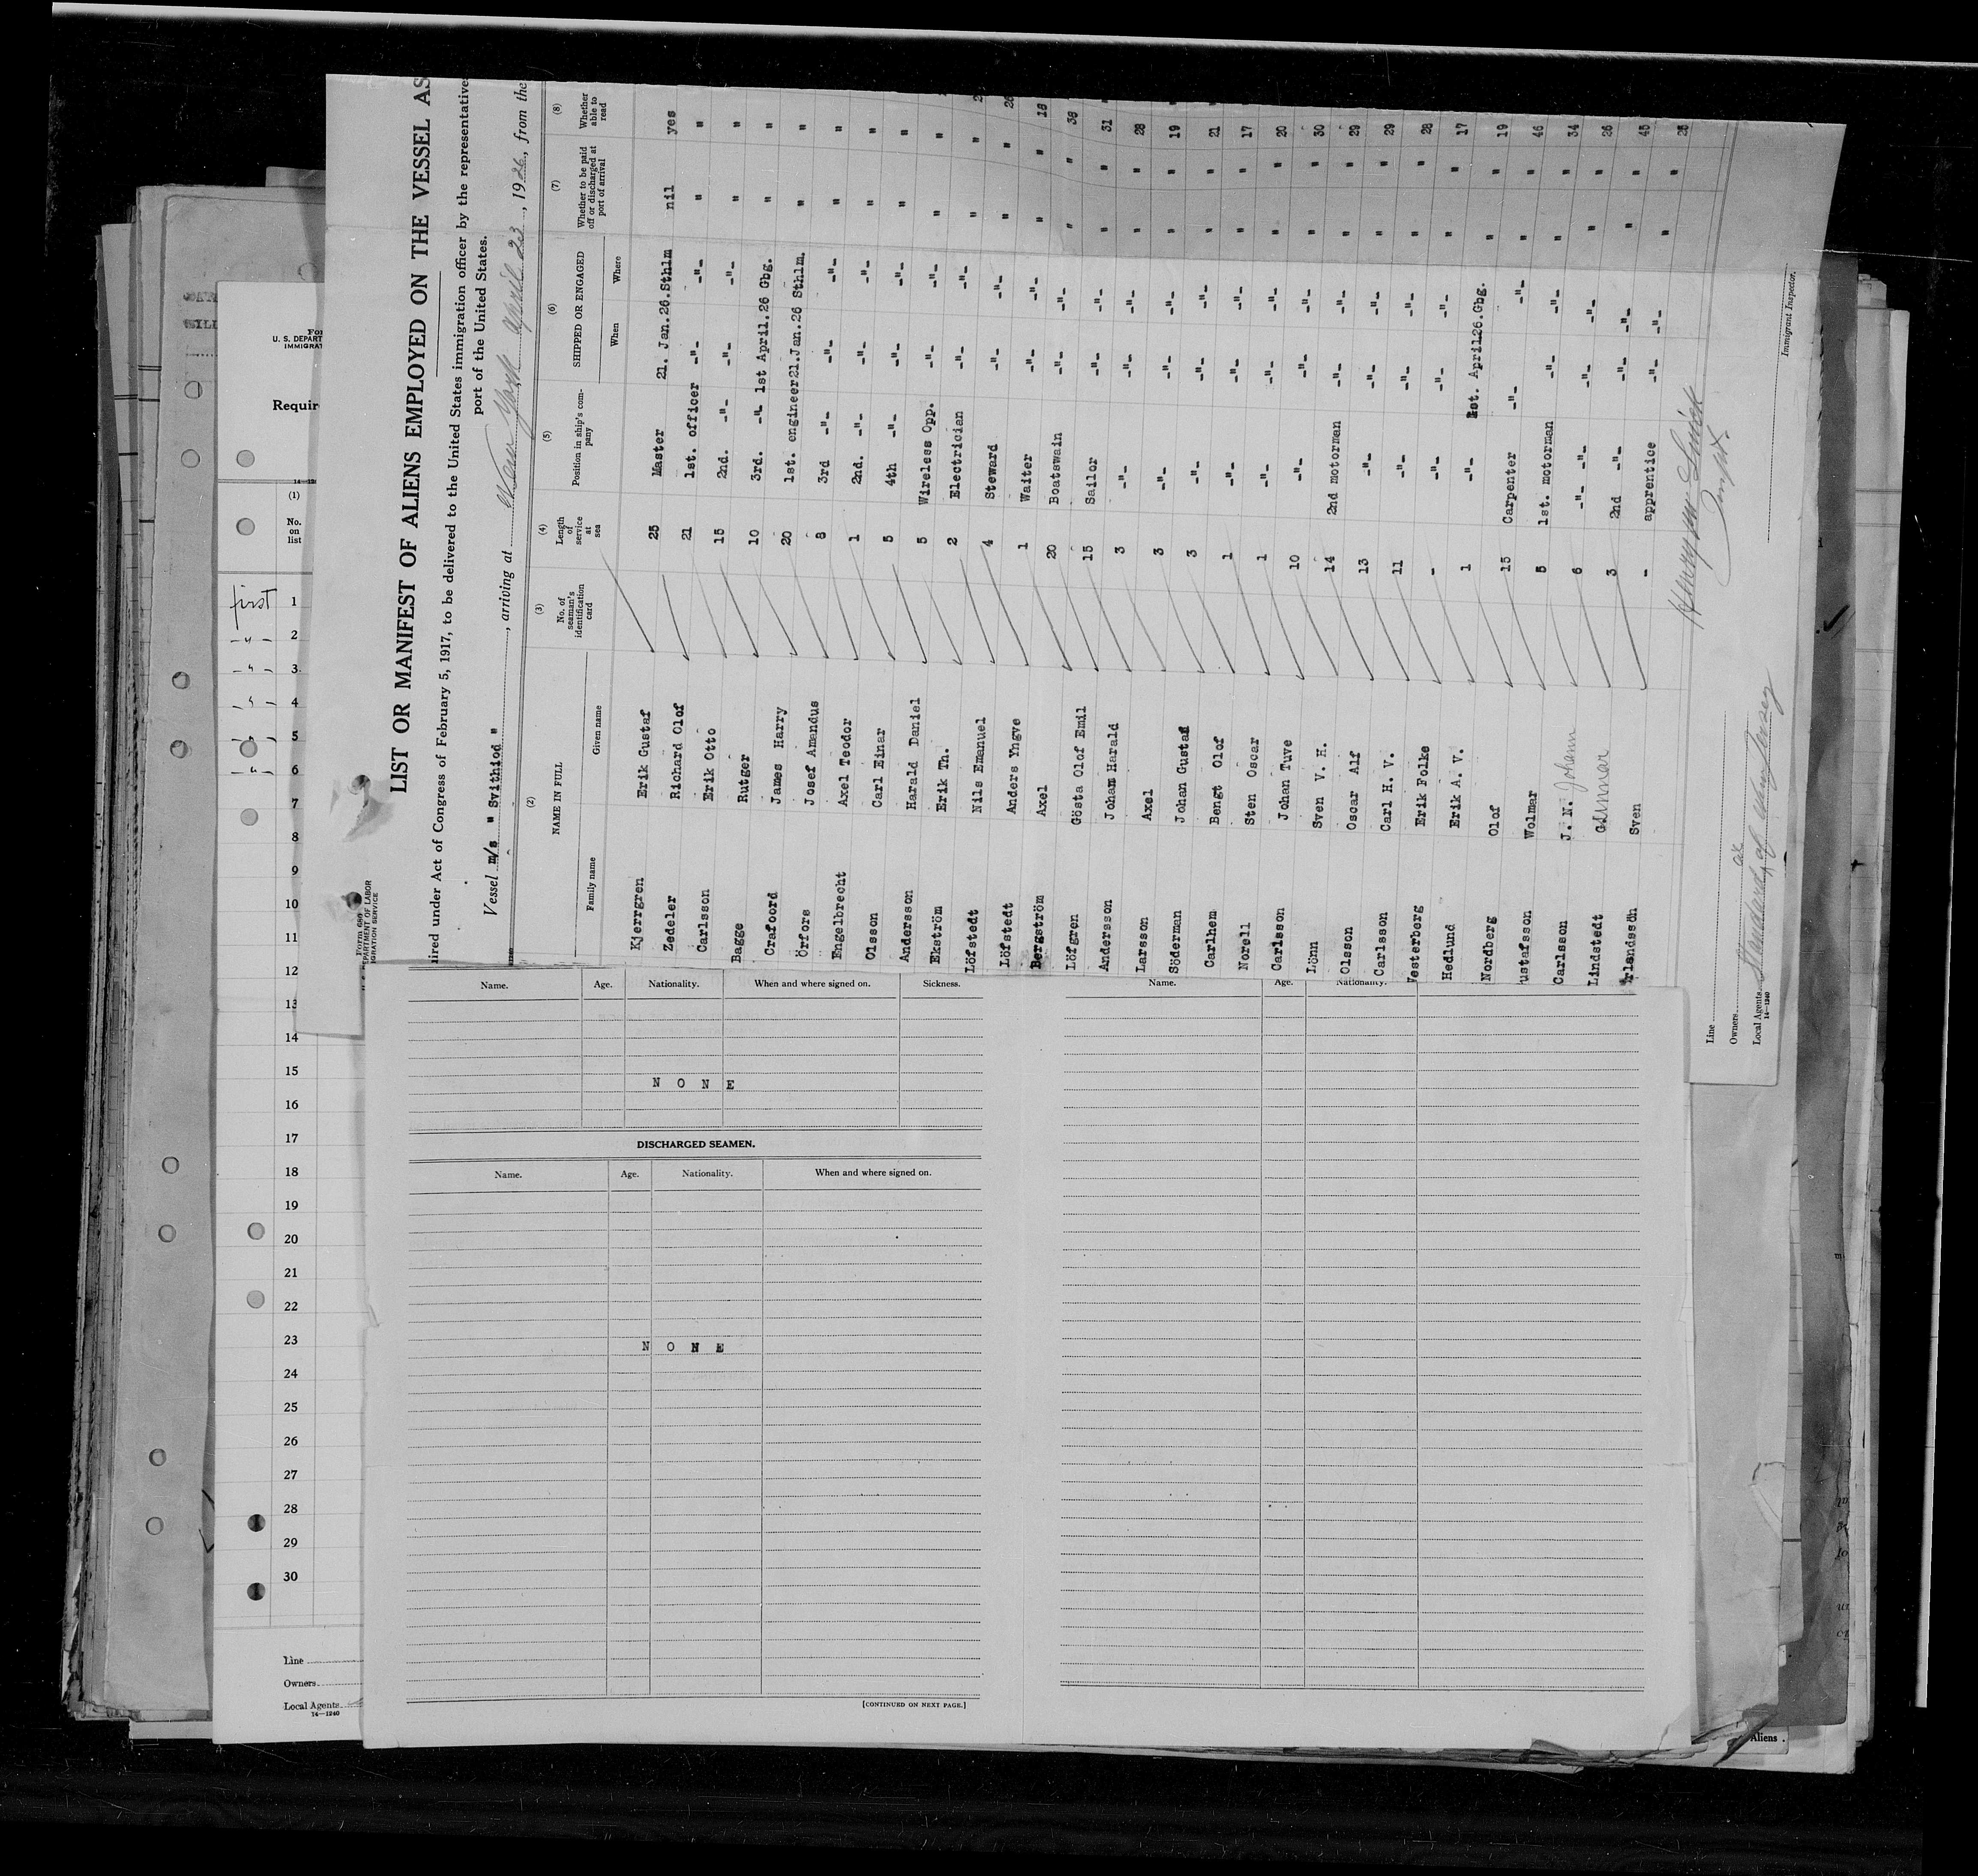 LIST OR MANIFEST OF ALIENS EMPLOYED ON THE VESSEL AS
ired under Act of Congress of February 5, 1917, to be delivered to the United States immigration officer by the representative
port of the United States.
Vessel m/s " Svithiod ", arriving at New York April 23, 1926, from the
(2) (3) (4) (5) (6) (7) (8)
NAME IN FULL No. of seaman's identification card Length of service at sea Position in ship's company SHIPPED OR ENGAGED Whether to be paid off or discharged at port of arrival Whether able to read
Family name Given name When Where
Kjerrgren Erik Gustaf 25 Master 21. Jan. 26. Sthlm nil yes
Zedeler Richard Olof 21 1st. officer -"- -"- " "
Carlsson Erik Otto 15 2nd. -"- -"- -"- " "
Bagge Rutger 10 3rd. -"- 1st April. 26 Gbg. " "
Crafoord James Harry 20 1st. engineer 21.Jan.26 Sthlm. " "
Örfors Josef Amandus 8 3rd -"- -"- -"- " "
Engelbrecht Axel Teodor 1 2nd. -"- -"- -"- " "
Olsson Carl Einar 5 4th -"- -"- -"- " "
Andersson Harald Daniel 5 Wireless Opp. -"- -"- " "
Ekström Erik Th. 2 Electrician -"- -"- " "
Löfstedt Nils Emanuel 4 Steward -"- -"- " "
Löfstedt Anders Yngve 1 Waiter -"- -"- " "
Bergström Axel 20 Boatswain -"- -"- " "
Löfgren Gösta Olof Emil 15 Sailor -"- -"- " "
Andersson Johan Harald 3 -"- -"- -"- " "
Larsson Axel 3 -"- -"- -"- " "
Söderman Johan Gustaf 3 -"- -"- -"- " "
Carlhem Bengt Olof 1 -"- -"- -"- " "
Norell Sten Oscar 1 -"- -"- -"- " "
Carlsson Johan Tuve 10 -"- -"- -"- " "
Lönn Sven V. H. 14 2nd motorman -"- -"- " "
Olsson Oscar Alf 13 -"- -"- -"- " "
Carlsson Carl H. V. 11 -"- -"- -"- " "
Vesterberg Erik Folke - -"- -"- -"- " "
Hedlund Erik A. V. 1 -"- 1st. April 26. Gbg. " "
Nordberg Olof 15 Carpenter -"- -"- " "
ustafsson Wolmar 5 1st. motorman -"- -"- " "
Carlsson J. N. Johann 6 -"- -"- -"- -"- " "
Lindstedt Gunnar 3 2nd -"- -"- -"- " "
Erlandssön Sven - apprentice -"- -"- "
18
38
31
28
19
21
17
20
30
29
29
28
17
19
46
34
26
45
25
Immigrant Inspector.
Line
Owners
Local Agents Standard Oil of New Jersey
14—1240
Form 680
PARTMENT OF LABOR
IGRATION SERVICE
For
U. S. DEPART
IMMIGRAT
Requir
14—12
(1)
No. on list
first 1
-"- 2
-"- 3
-"- 4
-"- 5
-"- 6
7
8
9
10
11
12
13
14
15
16
17
18
19
20
21
22
23
24
25
26
27
28
29
30
Line
Owners
Local Agents
14—1240
Name. Age. Nationality. When and where signed on. Sickness.
NONE
DISCHARGED SEAMEN.
Name. Age. Nationality. When and where signed on.
NONE
[CONTINUED ON NEXT PAGE.]
Name. Age. Nationality.
Aliens